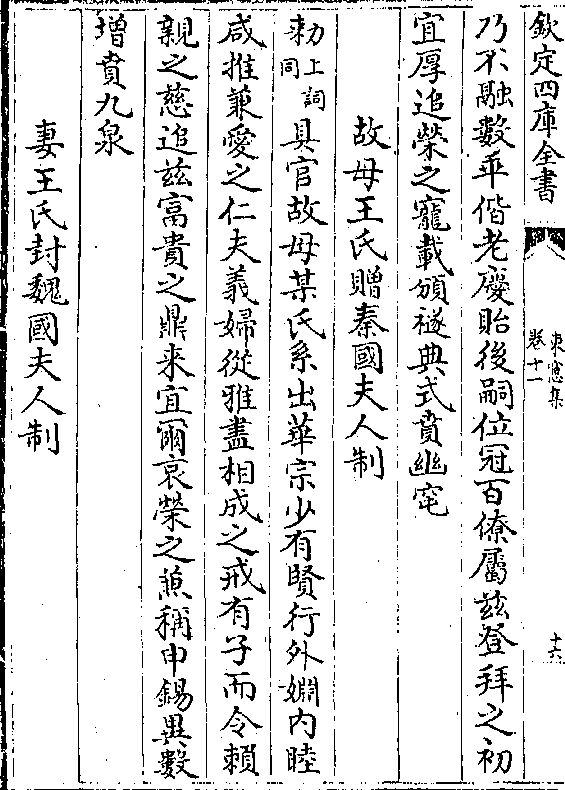 欽定四庫全書
東窻集
卷十一
十六
乃不融數乖偕老慶貽後嗣位冠百僚屬兹登拜之初
宜厚追榮之寵載頒襚典式賁幽窀
故母王氏贈秦國夫人制
勅上詞同具官故母某氏系出華宗少有賢行外婣内睦
咸推兼愛之仁夫義婦從雅盡相成之戒有子而令頼
親之慈追兹富貴之鼎来宜爾哀榮之兼稱申錫異數
增賁九泉
妻王氏封魏國夫人制